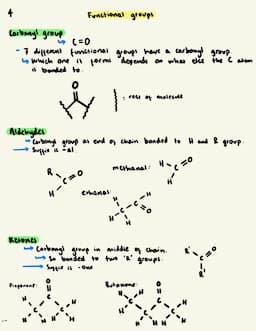 4
Functional groups
Carbonyl group
↳ C=O
- 7 different functional groups have a carbonyl group
↳ Which one it forms depends on what else the C atom
is bonded to.
O
: rest of molecule
Aldehydes
- Carbonyl group at end of chain bonded to H and R group.
→ Suffix is -al.
methanal: H C=O H
R C=O H
ethanal: H H C C=O H H
Ketones
→ Carbonyl group in middle of chain.
↳ So bonded to two 'R' groups.
→ Suffix is -one
R' C=O R'
Propanone: O
Butanone: H O
H C C C H
H C C C C H
H H H H
H H H H H